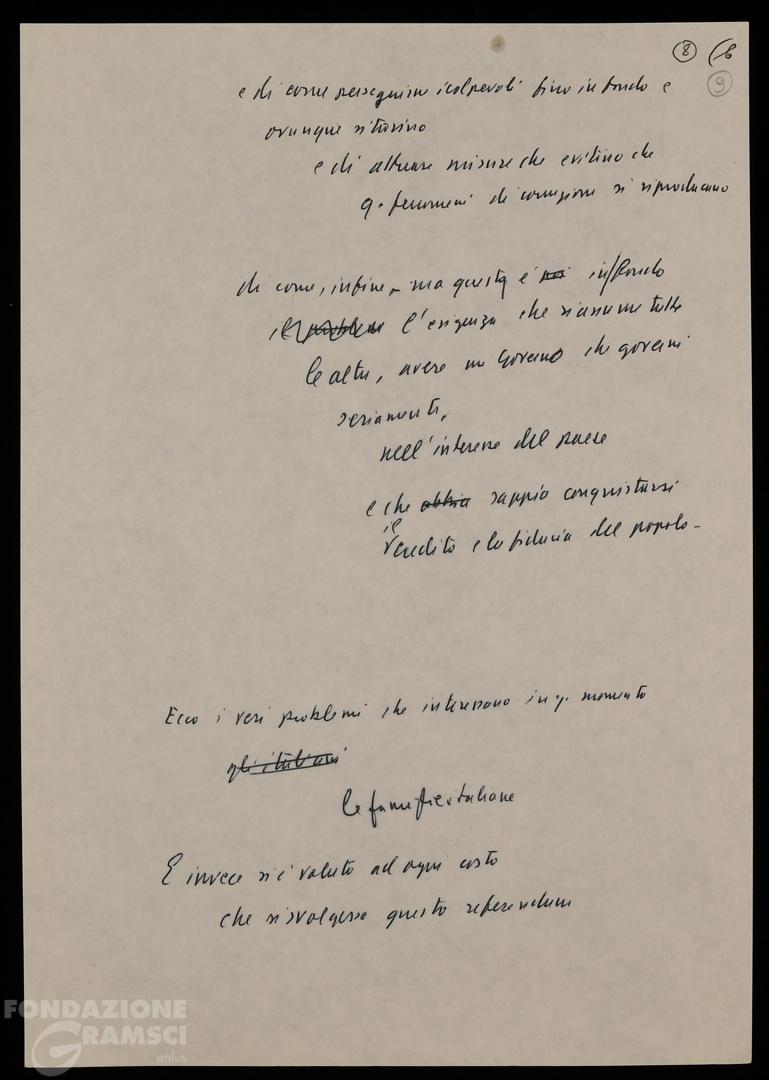 8 (6
9
e di come perseguire i colpevoli fino in fondo e
ovunque si trovino
e di attuare misure che evitino che
q. fenomeni di corruzione si riproducano
di come, infine, - ma questa è poi in fondo
il problema l'esigenza che riassume tutte
le altre, avere un Governo che governi
seriamente,
nell'interesse del paese
e che abbia sappia conquistarsi
il
credito e la fiducia del popolo -
Ecco i veri problemi che interessano in q. momento
gli italiani
le famiglie italiane
E invece si è voluto ad ogni costo
che si svolgesse questo referendum
FONDAZIONE
GRAMSCI
onlus